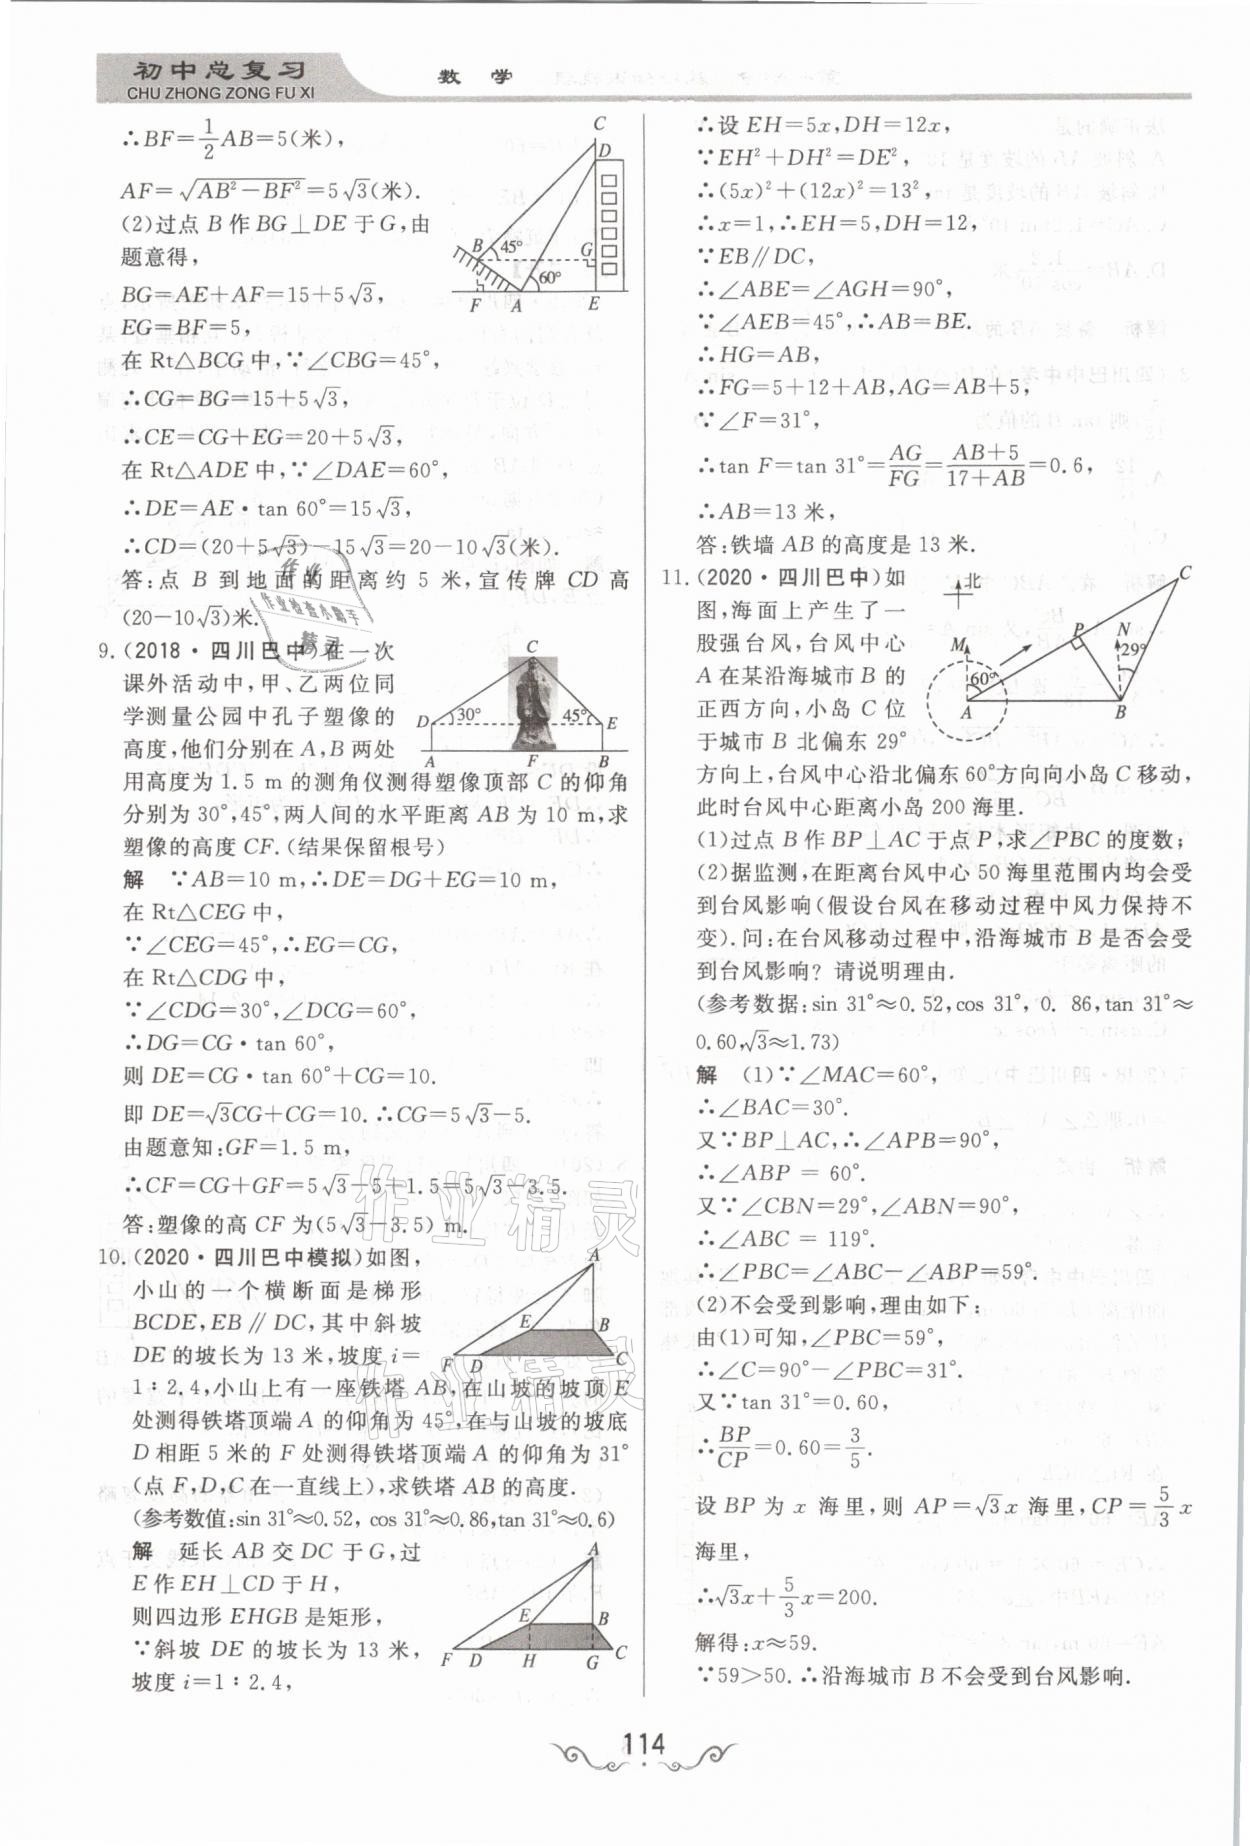 初中总复习 数 学
CHU ZHONG ZONG FU XI
∴BF=1/2AB=5(米),
AF=√(AB²-BF²)=5√3(米).
(2)过点 B 作 BG⊥DE 于 G,由
题意得,
BG=AE+AF=15+5√3,
EG=BF=5,
在 Rt△BCG 中,∵∠CBG=45°,
∴CG=BG=15+5√3,
∴CE=CG+EG=20+5√3,
在 Rt△ADE 中,∵∠DAE=60°,
∴DE=AE·tan 60°=15√3,
∴CD=(20+5√3)-15√3=20-10√3(米).
答:点 B 到地面的距离约 5 米,宣传牌 CD 高
(20-10√3)米.
C
D
B 45° G
60°
F A E
作业
作业检查小助手
精灵
9.(2018·四川巴中)在一次
课外活动中,甲、乙两位同
学测量公园中孔子塑像的
高度,他们分别在 A,B 两处
用高度为 1.5 m 的测角仪测得塑像顶部 C 的仰角
分别为 30°,45°,两人间的水平距离 AB 为 10 m,求
塑像的高度 CF.(结果保留根号)
C
D 30° 45° E
A F B
解 ∵AB=10 m,∴DE=DG+EG=10 m,
在 Rt△CEG 中,
∵∠CEG=45°,∴EG=CG,
在 Rt△CDG 中,
∵∠CDG=30°,∠DCG=60°,
∴DG=CG·tan 60°,
则 DE=CG·tan 60°+CG=10.
即 DE=√3CG+CG=10.∴CG=5√3-5.
由题意知:GF=1.5 m,
∴CF=CG+GF=5√3-5+1.5=5√3-3.5.
答:塑像的高 CF 为(5√3-3.5) m.
作业精灵
10.(2020·四川巴中模拟)如图,
小山的一个横断面是梯形
BCDE,EB∥DC,其中斜坡
DE 的坡长为 13 米,坡度 i=
1∶2.4,小山上有一座铁塔 AB,在山坡的坡顶 E
处测得铁塔顶端 A 的仰角为 45°,在与山坡的坡底
D 相距 5 米的 F 处测得铁塔顶端 A 的仰角为 31°
(点 F,D,C 在一直线上),求铁塔 AB 的高度.
(参考数值:sin 31°≈0.52, cos 31°≈0.86,tan 31°≈0.6)
A
E B
F D C
作业精灵
解 延长 AB 交 DC 于 G,过
E 作 EH⊥CD 于 H,
则四边形 EHGB 是矩形,
∵斜坡 DE 的坡长为 13 米,
坡度 i=1∶2.4,
A
E B
F D H G C
∴设 EH=5x,DH=12x,
∵EH²+DH²=DE²,
∴(5x)²+(12x)²=13²,
∴x=1,∴EH=5,DH=12,
∵EB∥DC,
∴∠ABE=∠AGH=90°,
∵∠AEB=45°,∴AB=BE.
∴HG=AB,
∴FG=5+12+AB,AG=AB+5,
∵∠F=31°,
∴tan F=tan 31°=AG/FG=(AB+5)/(17+AB)=0.6,
∴AB=13 米,
答:铁墙 AB 的高度是 13 米.
11.(2020·四川巴中)如
图,海面上产生了一
股强台风,台风中心
A 在某沿海城市 B 的
正西方向,小岛 C 位
于城市 B 北偏东 29°
方向上,台风中心沿北偏东 60°方向向小岛 C 移动,
此时台风中心距离小岛 200 海里.
北 C
M P N
60° 29°
A B
(1)过点 B 作 BP⊥AC 于点 P,求∠PBC 的度数;
(2)据监测,在距离台风中心 50 海里范围内均会受
到台风影响(假设台风在移动过程中风力保持不
变).问:在台风移动过程中,沿海城市 B 是否会受
到台风影响? 请说明理由.
(参考数据:sin 31°≈0.52,cos 31°, 0. 86,tan 31°≈
0.60,√3≈1.73)
解 (1)∵∠MAC=60°,
∴∠BAC=30°.
又∵BP⊥AC,∴∠APB=90°,
∴∠ABP = 60°.
又∵∠CBN=29°,∠ABN=90°,
∴∠ABC = 119°.
∴∠PBC=∠ABC-∠ABP=59°.
(2)不会受到影响,理由如下:
由(1)可知,∠PBC=59°,
∴∠C=90°-∠PBC=31°.
又∵tan 31°=0.60,
∴BP/CP=0.60=3/5.
设 BP 为 x 海里,则 AP=√3x 海里,CP=5/3x
海里,
∴√3x+5/3x=200.
解得:x≈59.
∵59>50.∴沿海城市 B 不会受到台风影响.
114